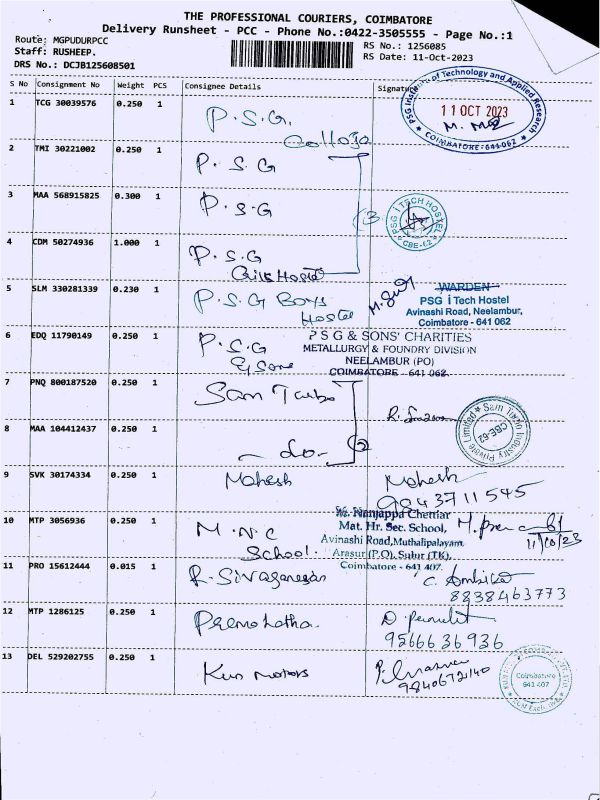 THE PROFESSIONAL COURIERS, COIMBATORE
Delivery Runsheet - PCC - Phone No.:0422-3505555 - Page No.:1
Route: MGPUDURPCC
Staff: RUSHEEP.
DRS No.: DCJB125608501
RS No.: 1256085
RS Date: 11-Oct-2023
S No Consignment No Weight PCS Consignee Details Signature
PSG Institute of Technology and Applied Research
11 OCT 2023
COIMBATORE-641 062
1 TCG 30039576 0.250 1 P.S.G. College
2 TMI 30221002 0.250 1 P.S.G
3 MAA 568915825 0.300 1 P.S.G
PSG iTECH HOSTEL
CBE-62
4 CDM 50274936 1.000 1 P.S.G
Girls Hostel
5 SLM 330281339 0.230 1 P.S.G Boys
Hostel
WARDEN
PSG iTech Hostel
Avinashi Road, Neelambur,
Coimbatore - 641 062
6 EDQ 11790149 0.250 1 P.S.G
& Sons
P S G & SONS' CHARITIES
METALLURGY & FOUNDRY DIVISION
NEELAMBUR (PO)
COIMBATORE - 641 062.
7 PNQ 800187520 0.250 1 Sam Turbo
8 MAA 104412437 0.250 1 - do -
Sam Turbo Industry Private Limited
CBE-62
9 SVK 30174334 0.250 1 Mahesh Mahesh
9843711545
10 MTP 3056936 0.250 1 M.N.C
School.
Nanjappa Chettiar
Mat. Hr. Sec. School,
Avinashi Road, Muthalipalayam,
Arasur (P.O), Sulur (TK),
Coimbatore - 641 407.
11/10/23
11 PRO 15612444 0.015 1 R. Sivaganesan C. Ambika
8838463773
12 MTP 1286125 0.250 1 Premalatha.
9566636936
13 DEL 529202755 0.250 1 Kun Motors
9840672140
Coimbatore
641 407